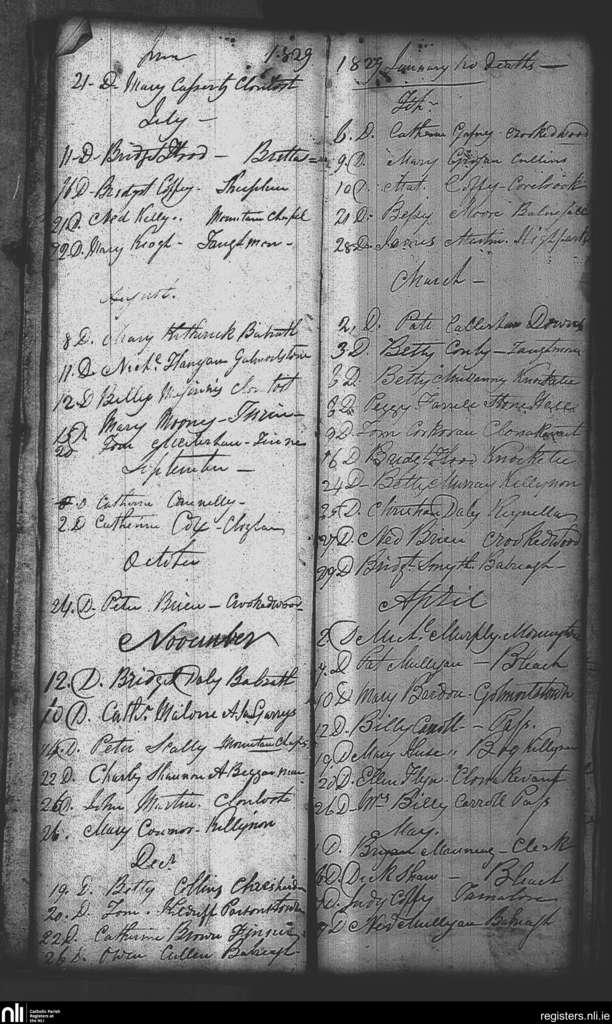 June 1829
21 - D - Mary Cafferty Clontost
July -
11 - D - Bridget Flood - Brottas
16 D - Bridget Coffey -
21 D. Ned Kelly. Mountain Chapel
29 D. Mary Keogh - Taughmon -
August.
8 D. Mary Babrath
11. D Nichs Flanagan Galmorstone
12 D Billy McGinnis Clontost
13 D. Mary Mooney -
20 Tom
September -
D Catherine Connelly -
2. D Catherine Cox - Cloghan
October
24. D. Peter Brien - Crookedwood
November
12. D. Bridget Daly Babrath
10 D. Cathr. Malone
14. D. Peter Nally Mountain Chapel
22 D. Charly Shannon A Beggar man
26 D. John Martin. Clontost
26. Mary Connor - Killynon
Decr
19. D. Betty Collins
20. D. Tom. Parsonstown
22 D. Catherine Brown
26 D. Owen Cullen Babragh
1829 January no deaths -
Feb -
6. D. Catherine Gafney - Crookedwood
9 D. Mary Cullins
10 D. Coffy - Corobrook
21 D. Betsy Moore
28 D. James Austin. Highpark
March -
2, D. Patt Callerhan Downs
3 D. Betty Conby - Taughmon
6 D. Betty Knockatie
8 D. Peggy Farrell Stone Hall
9 D. Tom Corkoran Clonakevant
16 D Bridgt. Flood Knockatie
24 D - Betty Murray Killynon
25 D. Christian Daly Reynella
27 D. Ned Brien Crookedwood
29 D Bridgt. Smyth Babragh -
April
2 D Michl. Murphy Mornington
7. D Pat Mulligan - Bleach
10 D Mary Bardon - Galmorstown
12 D. Billy Carroll - Pass.
19 D Mary Huse. Bog Killynon
20 D. Ellen Flyn. Clonakevant
26 D - Mrs Billy Carroll Pass
May.
1 D. Bryan - Clerk
6 D. Dick Shaw - Bleach
D. Judy Coffy
9 D Ned Mulligan Babragh
nli
Catholic Parish
Registers at
the NLI
registers.nli.ie